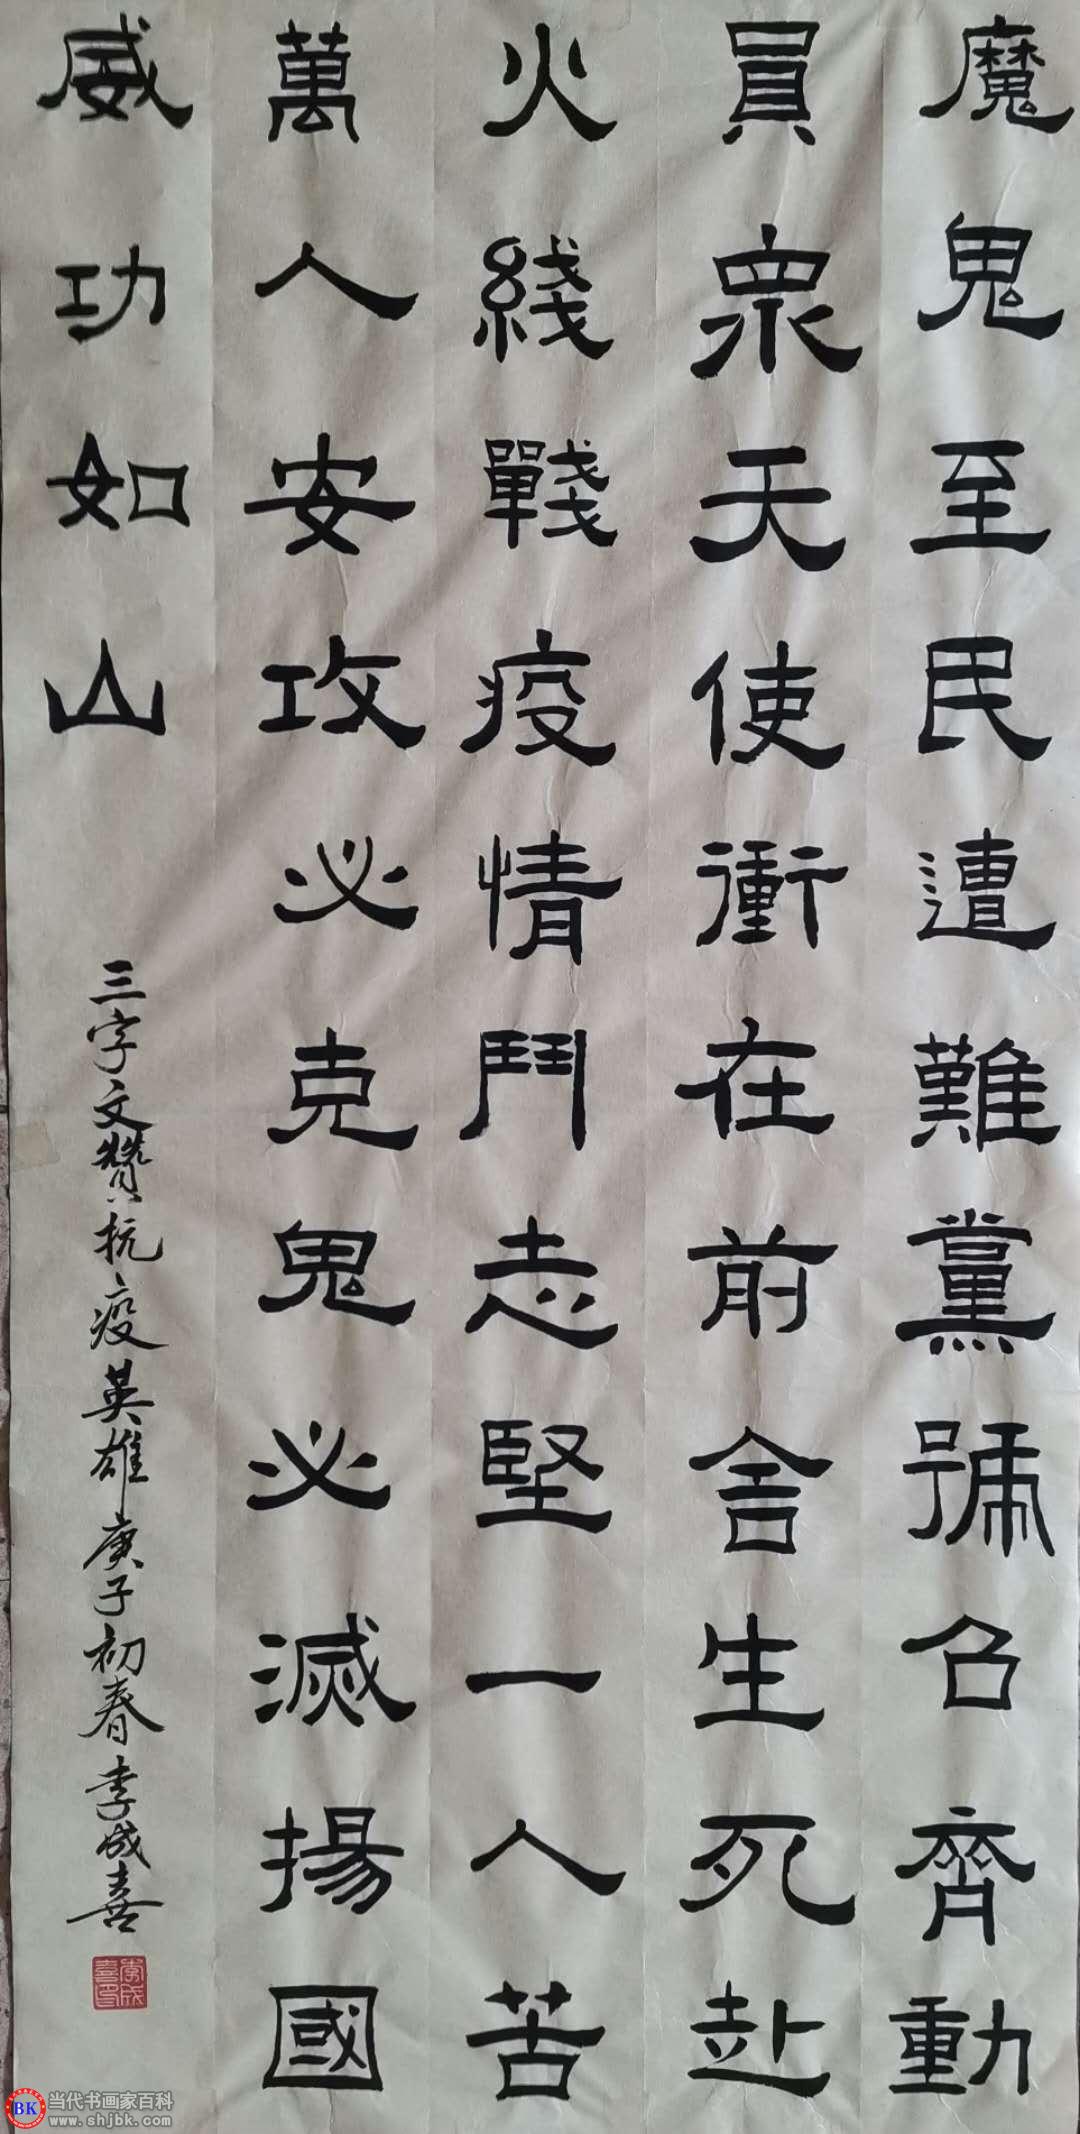 魔鬼至民遭難黨號召齊動
員眾天使衝在前舍生死赴
火綫戰疫情鬥志堅一人苦
萬人安攻必克鬼必滅揚國
威功如山
三字文贊抗疫英雄庚子初春李成喜
李成喜印
BK当代书画家百科
www.shjbk.com